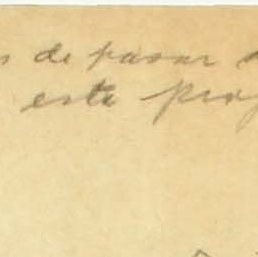 s de pasar
esta prop